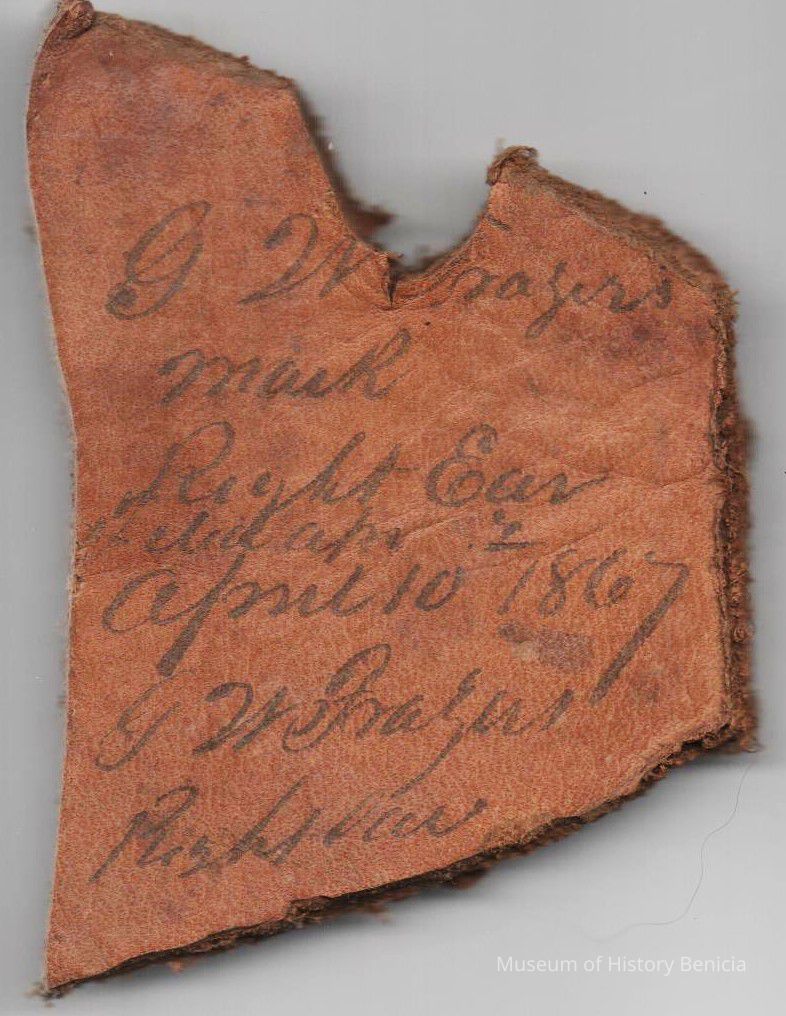 G W Frazers
mark
Right Ear
April 10 1867
G W Frazers
Right ear
Museum of History Benicia